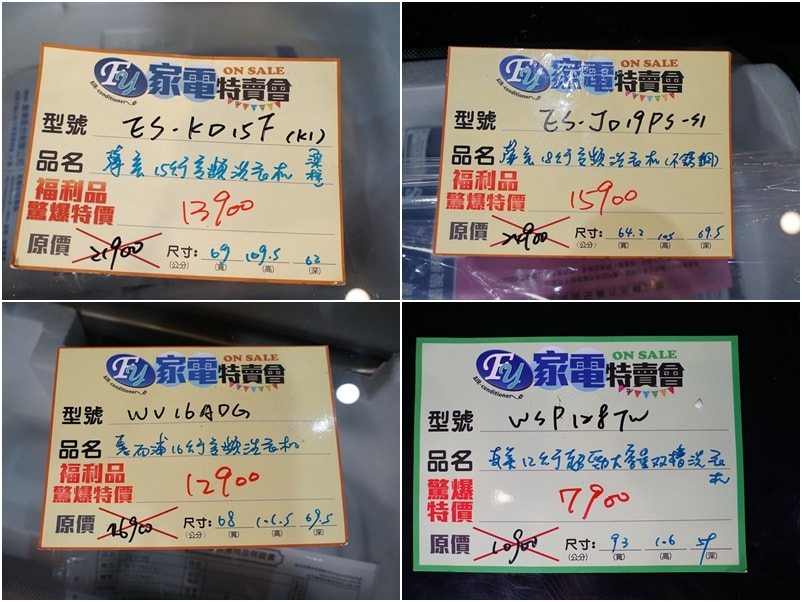 FY 家電特賣會 ON SALE
AIR-conditioner
型號 ES-KD15F (K1)
品名 15公斤變頻洗衣機
福利品
驚爆特價 13900
原價 21900 尺寸: 69 109.5 62
(公分) (寬) (高) (深)
FY 家電特賣會 ON SALE
AIR-conditioner
型號 ES-JD19PS-S1
品名 18公斤變頻洗衣機(不銹鋼)
福利品
驚爆特價 15900
原價 24900 尺寸: 64.2 105 69.5
(公分) (寬) (高) (深)
FY 家電特賣會 ON SALE
AIR-conditioner
型號 WV16ADG
品名 惠而浦16公斤變頻洗衣機
福利品
驚爆特價 12900
原價 26900 尺寸: 68 106.5 69.5
(公分) (寬) (高) (深)
FY 家電特賣會 ON SALE
AIR-conditioner
型號 WSP128TW
品名 12公斤超勁大容量双槽洗衣
机
驚爆
特價 7900
原價 10900 尺寸: 93 106 59
(公分) (寬) (高) (深)